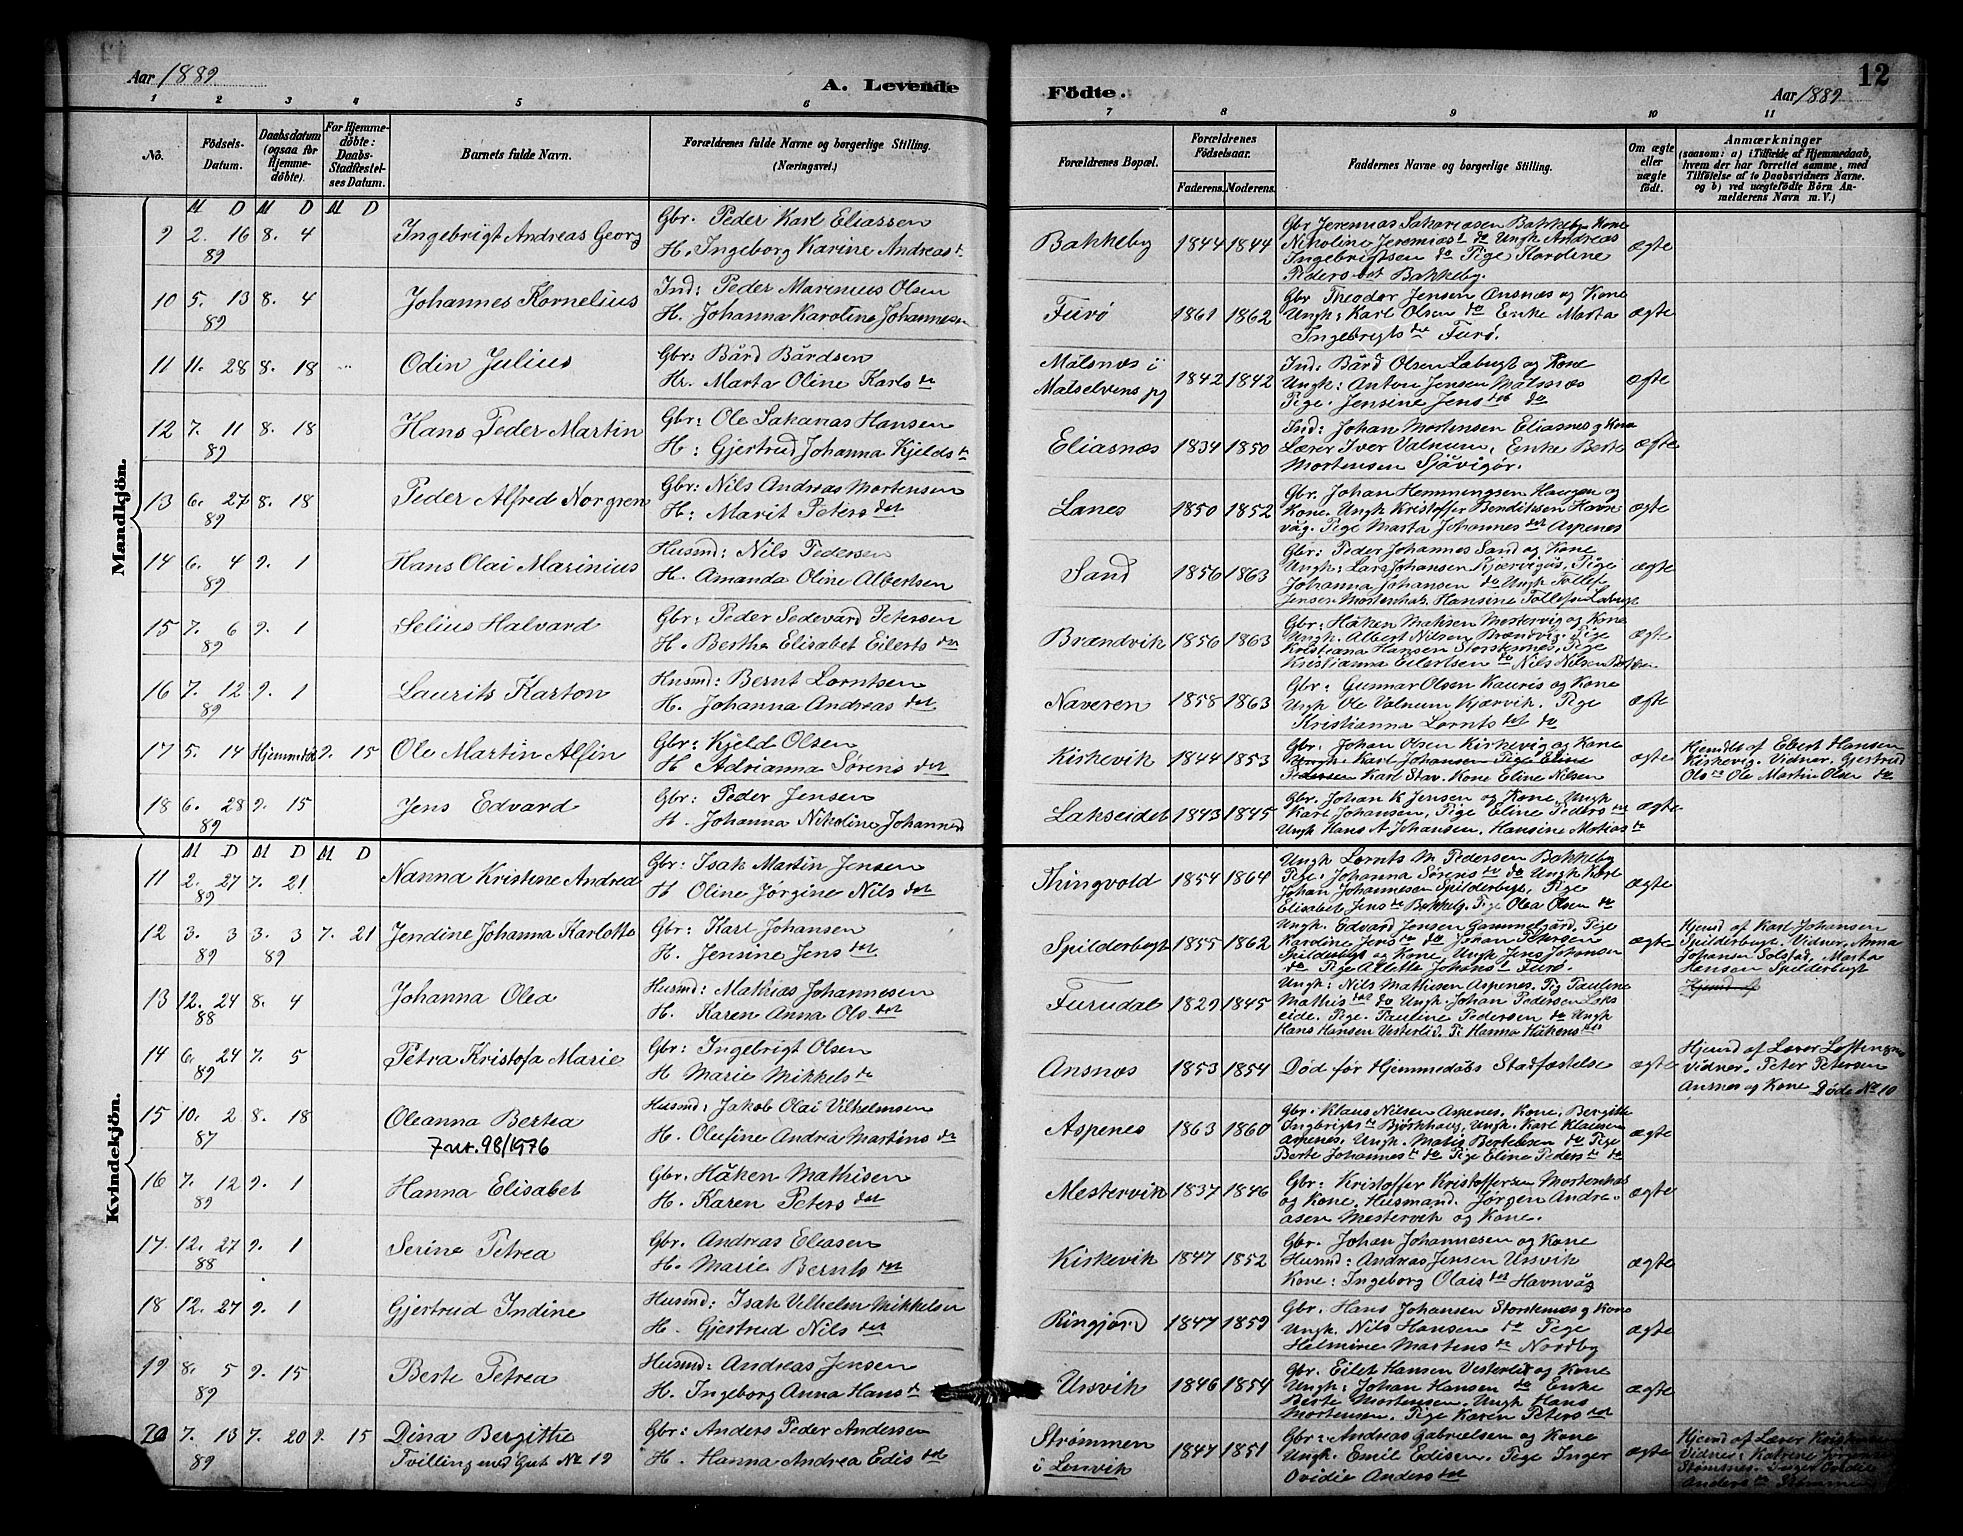 Aar 1889
A. Levende Födte.
Aar 1889
12
1 2 3 4 5 6 7 8 9 10 11
No.
Födsels-Datum.
Daabsdatum (ogsaa for Hjemme-döbte).
For Hjemme-döbte: Daabs-Stadfæstel-ses Datum.
Barnets fulde Navn.
Forældrenes fulde Navne og borgerlige Stilling. (Næringsvei.)
Forældrenes Bopæl.
Forældrenes Födselsaar.
Faderens. Moderens.
Faddernes Navne og borgerlige Stilling.
Om ægte eller uægte födt.
Anmærkninger
(saasom: a) i Tilfælde af Hjemmedaab, hvem der har forrettet samme, med Tilföielse af to Daabsvidners Navne. og b) ved uægtefödte Börn An-melderens Navn m. V.)
Mandkjön.
M D M D M D
9 2. 16 89 8. 4 Ingebrigt Andreas Georg
Gbr. Peder Karl Eliassen
H. Ingeborg Karine Andreas
Bakkeby 1844 1844
Gbr Jeremias Sakariasen Bakkeby Kone
Nikoline Jeremias do Ungk Andreas
Ingebrigtsen do Pige Karoline
Peders det Bakkeby.
ægte
10 5. 13 89 8. 4 Johannes Kornelius
Ind: Peder Marinius Olsen
H. Johanna Karoline Johannesen
Furø 1861 1862
Gbr Theodor Jensen Ansnæs og Kone
Ungk: Karl Olsen do Enke Marta
Ingebrigts da Furø.
ægte
11 11. 28 8. 18 Odin Julius
Gbr: Bård Bårdsen
Hr. Marta Oline Karls da
Målsnæs i
Målselvens pg 1842 1842
Ind. Bård Olsen Løbugt og Kone
Ungk: Anton Jensen Målsnæs
Pige. Jensine Jens det do
ægte
12 7. 11 89 8. 18 Hans Peder Martin
Gbr: Ole Sakarias Hansen
H: Gjertrud Johanna Kjelds da
Eliasnæs 1834 1850
Ind: Johan Mortensen Eliasnes og Kone
Lærer Iver Valnum, Enke Berte
Mortensen Sjåvigør.
ægte
13 6. 27 89 8. 18 Peder Alfred Norgren
Gbr: Nils Andreas Mortensen
H: Marit Peters det
Lanes 1850 1852
Gbr. Johan Hemmingsen Haugen og
Kone. Ungk Kristoffer Bendiksen Havn
våg. Pige Marta Johannes det Aspenes
ægte
14 6. 4 89 9. 1 Hans Olai Marinius
Husmd: Nils Pedersen
H. Amanda Oline Albertsen
Sand 1856 1863
Gbr: Peder Johannes Sand og Kone
Ungk: Lars Johansen Kjærvigås, Pige
Johanna Johansen do Ungk Tollef
Jensen Mortenhals. Hansine Tollefsen Løbugt
ægte
15 7. 6 89 9. 1 Selius Halvard
Gbr: Peder Sedevard Petersen
H. Bertha Elisabet Eilerts det
Brændvik 1856 1863
Gbr: Håken Mathsen Mestervig og Kone
Ungk. Albert Nilsen Brændvig. Pige
Kristiana Hansen Storstennes, Pige
Kristianna Eilertsen do Nils Nilsen
ægte
16 7. 12 89 9. 1 Laurits Karton
Husmd: Bernt Lorntsen
H. Johanna Andreas det
Naveren 1858 1863
Gbr: Gunnar Olsen Kauris og Kone
Ungk Ole Valnum Kjærvik. Pige
Kristianna Lornts det do
ægte
17 5. 14 Hjemmedøbt 9. 15 Ole Martin Alfin
Gbr: Kjeld Olsen
H Adrianna Sørens det
Kirkevik 1844 1853
Gbr: Johan Olsen Kirkevig og Kone
Ungk: Karl Johansen Pige Eline
Pedersen Karl Stav. Kone Eline Nilsen
ægte
Hjemdt af Ebert Hansen
Kirkevig. Vidner. Gjertrud
Ols da Ole Martin Olsen do
18 6. 28 89 9. 15 Jens Edvard
Gbr: Peder Jensen
H. Johanna Nikoline Johannesd
Lakseidet 1843 1845
Gbr. Johan K Jensen og Kone, Ungk
Karl Johansen, Pige Eline Peders det
Ungk Hans A Johansen, Hansine Matias da
ægte
Kvindekjön.
M D M D M D
11 2. 27 89 7. 21 Nanna Kristine Andrea
Gbr: Isak Martin Jensen
H Oline Jørgine Nils det
Thingvold 1854 1864
Ungk Lornts M. Pedersen Bakkeby
Pige: Johanna Sørens da do Ungk Karl
Johan Johannesen Spilderbugt, Pige
Elisabet Jens da Bakkeby. Pige Olea Olsen do
ægte
12 3. 3 89 3. 3 89 7. 21 Jendine Johanna Karlotte
Gbr: Karl Johansen
H. Jensine Jens det
Spilderbugt 1855 1862
Ungk. Edvard Jensen Gammelgård, Pige
Karoline Jens da do Johan Petersen
Spilderbugt og Kone, Ungk Jens Johansen
do Pige Alette Johans Furø.
ægte
Hjemd af Karl Johansen
Spilderbugt. Vidner. Anna
Johansen Solstad, Marta
Hansen Spilderbugt
Hjemd af
13 12. 24 88 8. 4 Johanna Olea
Husmd: Mathias Johannesen
H. Karen Anna Ols det
Furudal 1829 1845
Ungk: Nils Mathisen Aspenes. Pig Pauline
Mathis det do Ungk. Johan Pedersen Laks
eide. Pige. Pauline Pedersen do Ungk
Hans Hansen Vesterlid. Pi Hanna Håkens det
ægte
14 6. 24 89 7. 5 Petra Kristofa Marie
Gbr: Ingebrigt Olsen
H Marie Mikkels da
Ansnæs 1853 1854
Død før Hjemmedåbs Stadfæstelse
ægte
Hjemd af Lærer
Vidner. Peter Petersen
Ansnes og Kone Døde No 10
15 10. 2 87 8. 18 Oleanna Bertea
7 nr. 98/1976
Husmd: Jakob Olai Vilhelmsen
H. Olufine Andrea Martins da
Aspenes 1863 1860
Gbr. Klaus Nilsen Aspenes. Kone. Bergitte
Ingbrigts da Bjørkhaug, Ungk. Karl Klausen
Aspenes, Ungk. Matis Bertelsen do Pige
Berte Johannes da do Pige Eline Peders da do
ægte
16 7. 12 89 9. 1 Hanna Elisabet
Gbr. Håken Mathisen
H. Karen Peters det
Mestervik 1837 1846
Gbr: Kristoffer Kristoffersen Mortenhas
og Kone, Husmand. Jørgen Andre-
asen Mestervik og Kone.
ægte
17. 12. 27 88 9. 1 Serine Petrea
Gbr. Andreas Eliasen
H. Marie Bernts det
Kirkevik 1847 1852
Gbr. Johan Johannesen og Kone
Husmd: Andreas Jensen Ursvik
Kone: Ingeborg Olais det Havnvåg
ægte
18 12. 27 9. 1 Gjertrud Indine
Husmd: Isak Vilhelm Mikkelsen
H. Gjertrud Nils det
Ringjord 1847 1859
Gbr. Hans Johansen Storstenæs og Kone
Ungk. Nils Hansen do Pige
Helmine Martens da Nordby
ægte
19 8. 5 89 9. 15 Berte Petrea
Husmd: Andreas Jensen
H. Ingeborg Anna Hans da
Ursvik 1846 1854
Gbr: Eilet Hansen Vesterlid og Kone
Ungk: Johan Hansen do Enke
Berte Mortensen. Ungk Hans
Mortensen. Pige Karen Peters det
ægte
20 7. 13 89 7. 20 9. 15 Dina Bergitthe
Tvilling med Gut No 19
Gbr: Anders Peder Andersen
H. Hanna Andrea Edis det
Strømmen
i Lenvik 1847 1851
Gbr: Andreas Gabrielsen og Kone
Ungk: Emil Edisen. Pige Inger
Ovidie Anders det
ægte
Hjemd af Lærer
Vidner: Katrine
Strømsnes. Inger Ovidie
Anders da Strømmen